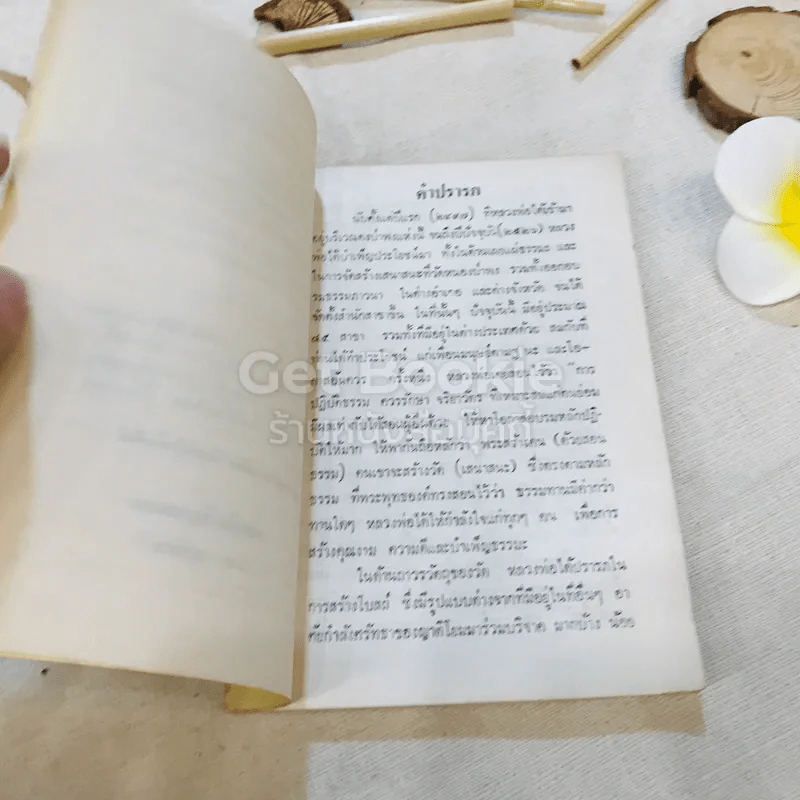 คำปรารภ
นับตั้งแต่ปีแรก (๒๔๙๗) ที่หลวงพ่อได้เข้ามา
อยู่บริเวณดงป่าพงแห่งนี้ จนถึงปีปัจจุบัน(๒๕๒๖) หลวง
พ่อได้บำเพ็ญประโยชน์มา ทั้งในด้านเผยแผ่ธรรมะ และ
ในการจัดสร้างเสนาสนะที่วัดหนองป่าพง รวมทั้งออกอบ
รมธรรมภาวนา ในต่างอำเภอ และต่างจังหวัด จนได้
จัดตั้งสำนักสาขาขึ้น ในที่นั้นๆ ปัจจุบันนี้ มีอยู่ประมาณ
สาขา รวมทั้งที่มีอยู่ในต่างประเทศด้วย สมกับที่
ท่านได้ทำประโยชน์ แก่เพื่อนมนุษย์ตามฐานะ และโอ-
กาสอันควร ครั้งหนึ่ง หลวงพ่อเคยสอนไว้ว่า การ
ปฏิบัติธรรม ควรรักษา จริยาวัตร ที่เหมาะสม
มีผลเท่ากับได้สอนผู้อื่นด้วย ให้หาโอกาสอบรมหลักปฏิ-
บัติให้มาก ให้พากันถือหลักว่า พระสร้างคน (ด้วยสอน
ธรรม) คนเขาจะสร้างวัด (เสนาสนะ) ซึ่งตรงตามหลัก
ธรรม ที่พระพุทธองค์ทรงสอนไว้ว่า ธรรมทานมีค่ากว่า
ทานใดๆ หลวงพ่อได้ให้กำลังใจแก่ทุกๆ คน เพื่อการ
สร้างคุณงาม ความดีและบำเพ็ญธรรมะ
ในด้านถาวรวัตถุของวัด หลวงพ่อได้ปรารภใน
การสร้างโบสถ์ ซึ่งมีรูปแบบต่างจากที่มีอยู่ในที่อื่นๆ อา
ศัยกำลังศรัทธาของญาติโยมมาร่วมบริจาค มากบ้าง น้อย
Get Bookie
ร้านหนังสือมุ๊คกี้